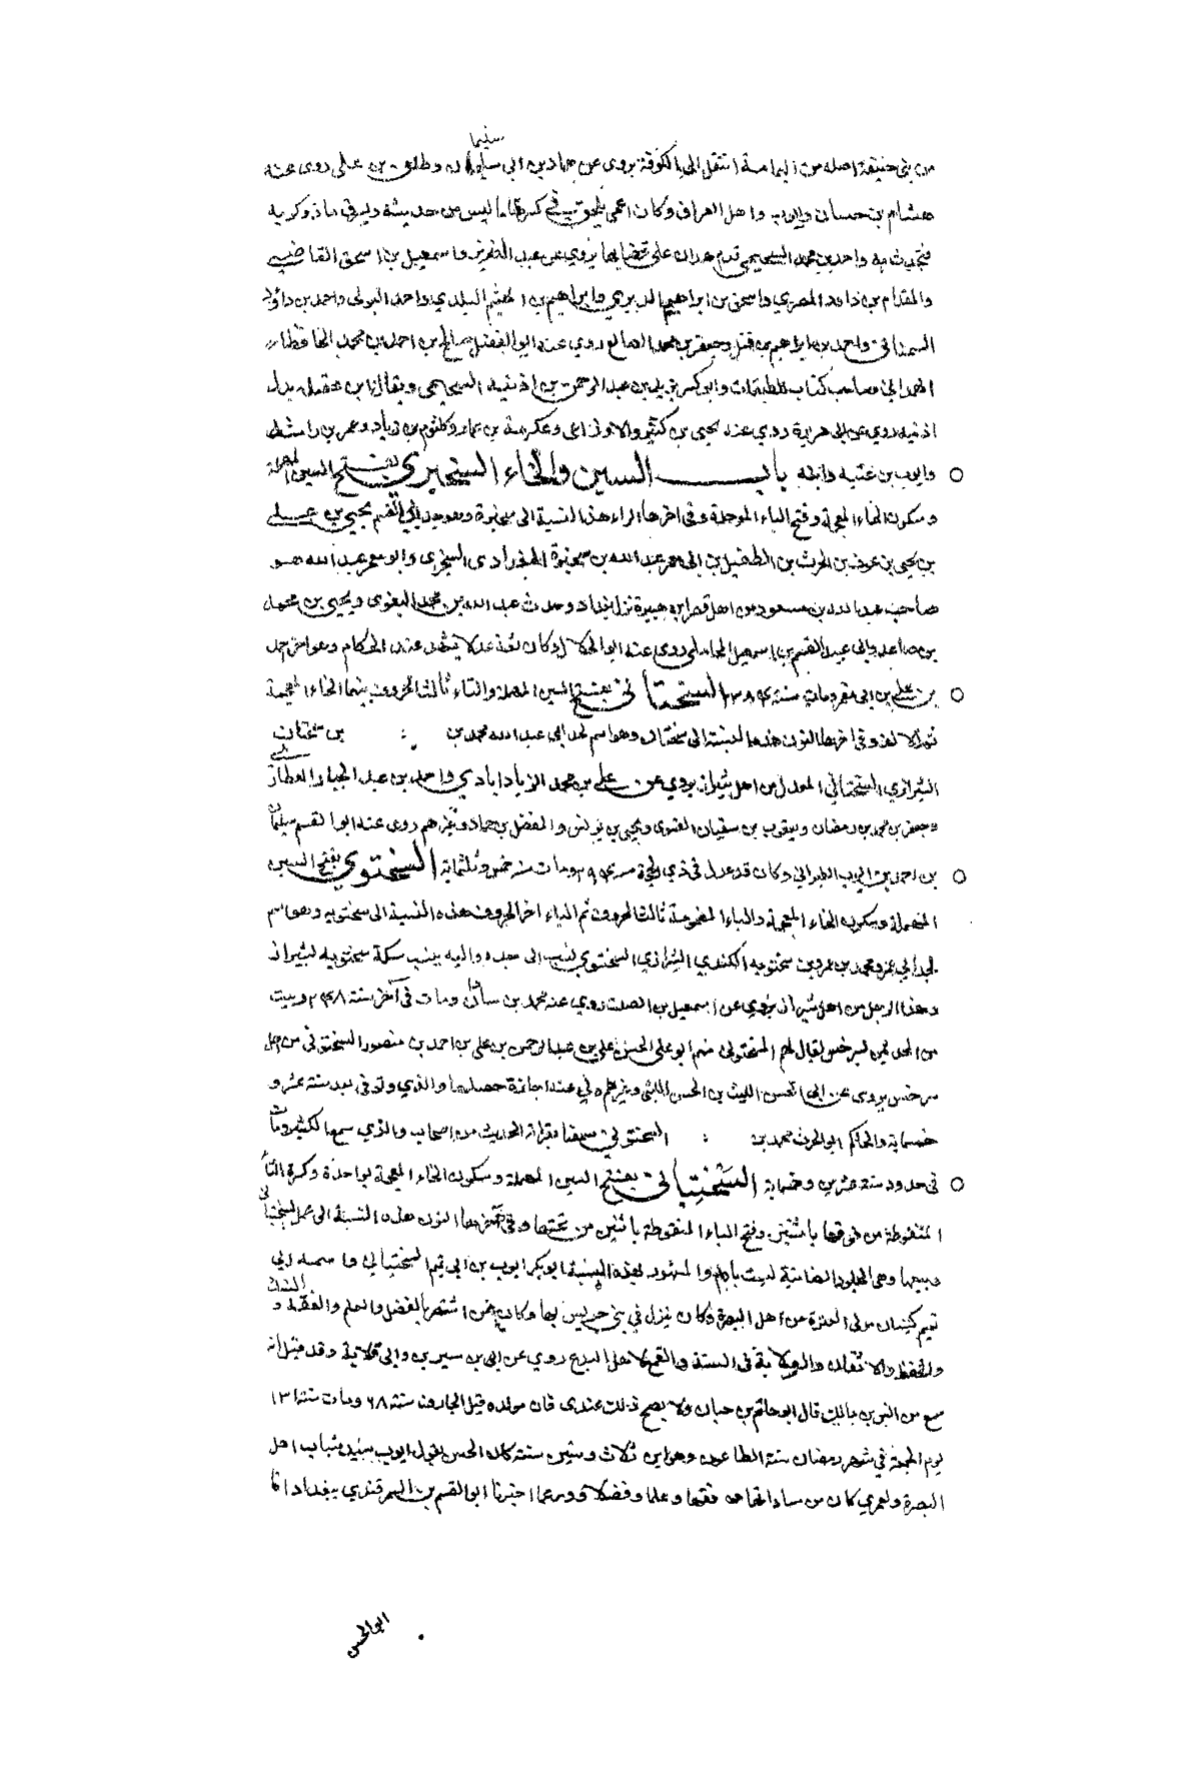 من بني حنيفة اصله من اليمامة انتقل الى الكوفة يروى عن حماد بن ابى سليمان وطلق بن على روى عنه
هشام بن حسان وايوب واهل العراق وكان اعمى يلحق في كتبه ما ليس من حديثه ويسرق ما ذوكر به
فيحدث به واحمد بن محمد السحيمي قدم همدان على قضايها يروي عن عبد العزيز واسمعيل بن اسحق القاضي
والمقدام بن داود المصري واسحق بن ابراهيم الدبري وابراهيم بن الهيثم البلدي واحمد البرلى واحمد بن داؤد
السمناني واحمد بن ابراهيم بن فيل وجعفر بن محمد الصائغ روي عنه ابو الفضل صالح بن احمد بن محمد الحافظ
الهمداني صاحب كتاب الطبقات وابو كثير يزيد بن عبد الرحمن بن اذينة السحيمي ويقال ابن غفيلة بدل
اذينة روي عن ابى هريرة روي عنه يحيى بن كثير والاوزاعى وعكرمة بن عمار وكلثوم بن زياد وعمر بن راشد
وايوب بن عتبة وابنه باب السين والخاء السخبري بفتح السين المهملة
وسكون الخاء المعجمة وفتح الباء الموحدة وفى اخرها الراء هذا النسبة الى سخبرة وهو جد ابي القسم يحيى بن على
بن يحيى بن عوف بن الحرث بن الطفيل بن ابى معمر عبد الله بن سخبرة البغدادى السخبرى وابو معمر عبد الله هو
صاحب عبد الله بن مسعود من اهل قصر ابن هبيرة نزل بغداد وحدث عبد الله بن محمد البغوى ويحيى بن محمد
بن صاعد وابى عبيد القسم بن اسمعيل المحاملي روى عنه ابو الخلال وكان ثقة عدلا يشهد عند الحكام وهو ابن احمد
بن علي بن ابى معمر ومات سنة ٣٨٤ السختاني بفتح السين المهملة والتاء ثالث الحروف بينهما الخاء المعجمة
ثم الالف وفى اخرها النون هذه النسبة الى سختان وهو اسم لجد ابي عبد الله محمد بن بن سختان
الشيرازي السختاني المعدل من اهل شيراز يروي عن علي بن محمد الزياداباذي واحمد بن عبد الجبار العطار
وجعفر بن محمد بن رمضان ويعقوب بن سفيان الفسوى ويحيى بن يونس والمفضل بن حماد وغيرهم روى عنه ابو القسم سليمان
بن احمد بن ايوب الطبراني وكان قد عدل فى ذي الحجة سنة ٢٩٩ ومات سنة خمس وثلثماية السختوي بفتح السين
المهملة وسكون الخاء المعجمة والتاء المضمومة ثالث الحروف ثم الياء اخر الحروف هذه النسبة الى سختويه وهو اسم
لجد ابي عمرو محمد بن عمرو بن سختويه الكندي الشيرازي السختوي نسب الى جده واليه ينسب سكة سختويه بشيراز
وهذا الرجل من اهل شيراز يروي عن اسمعيل بن الصلت روي عنه محمد بن شاذان ومات فى آخر سنة ٢٦٨ وبيت
من المحدثين بسرخس يقال لهم السختوني منهم ابو على الحسن على بن عبد الرحمن بن على بن احمد بن منصور السختوني من اهل
سرخس يروى عن ابى الحسن الليث بن الحسن الليثى وغيرهم لي عنه اجازة حصلها والذي وتوفى بعد سنة عشر و
خمسماية والحاكم ابو الحرث محمد بن السختوني سمعنا بقراته الحديث من اصحاب والذي سمع الكثير ومات
فى حدود سنة عشرين وخمسماية السَخْتِياني بفتح السين المهملة وسكون الخاء المعجمة بواحدة وكسرة التاء
المنقوطة من فوقها باثنتين وفتح الياء المنقوطة باثنين من تحتها وفى آخرها النون هذه النسبة الى عمل السختياني
وبيعها وهى الجلود الضانية ليست بادم والمشهور بهذه النسبة ابو بكر ايوب بن ابى تميم السختياني واسم ابي
تميم كيسان مولى العنزة من اهل البصرة وكان ينزل في بني حريش بها وكان ممن اشتهر بالفضل والعلم والفقه و النسك
والحفظ والاتقان والصلابة فى السنة والقمع لاهل البدع روي عن ابن سيرين وابى قلابة وقد قيل انه
سمع من انس بن مالك قال ابو حاتم بن حبان ولا يصح ذلك عندى فان مولده قبل الجارف سنة ٦٨ ومات سنة ١٣١
يوم الجمعة في شهر رمضان سنة الطاعون وهو ابن ثلاث وستين سنة كان الحسن يقول ايوب سيد شباب اهل
البصرة ولعمري كان من ساداتها فقها وعلما وفضلا وورعا اخبرنا ابو القسم بن السمرقندي ببغداد انا
ابو الحسن